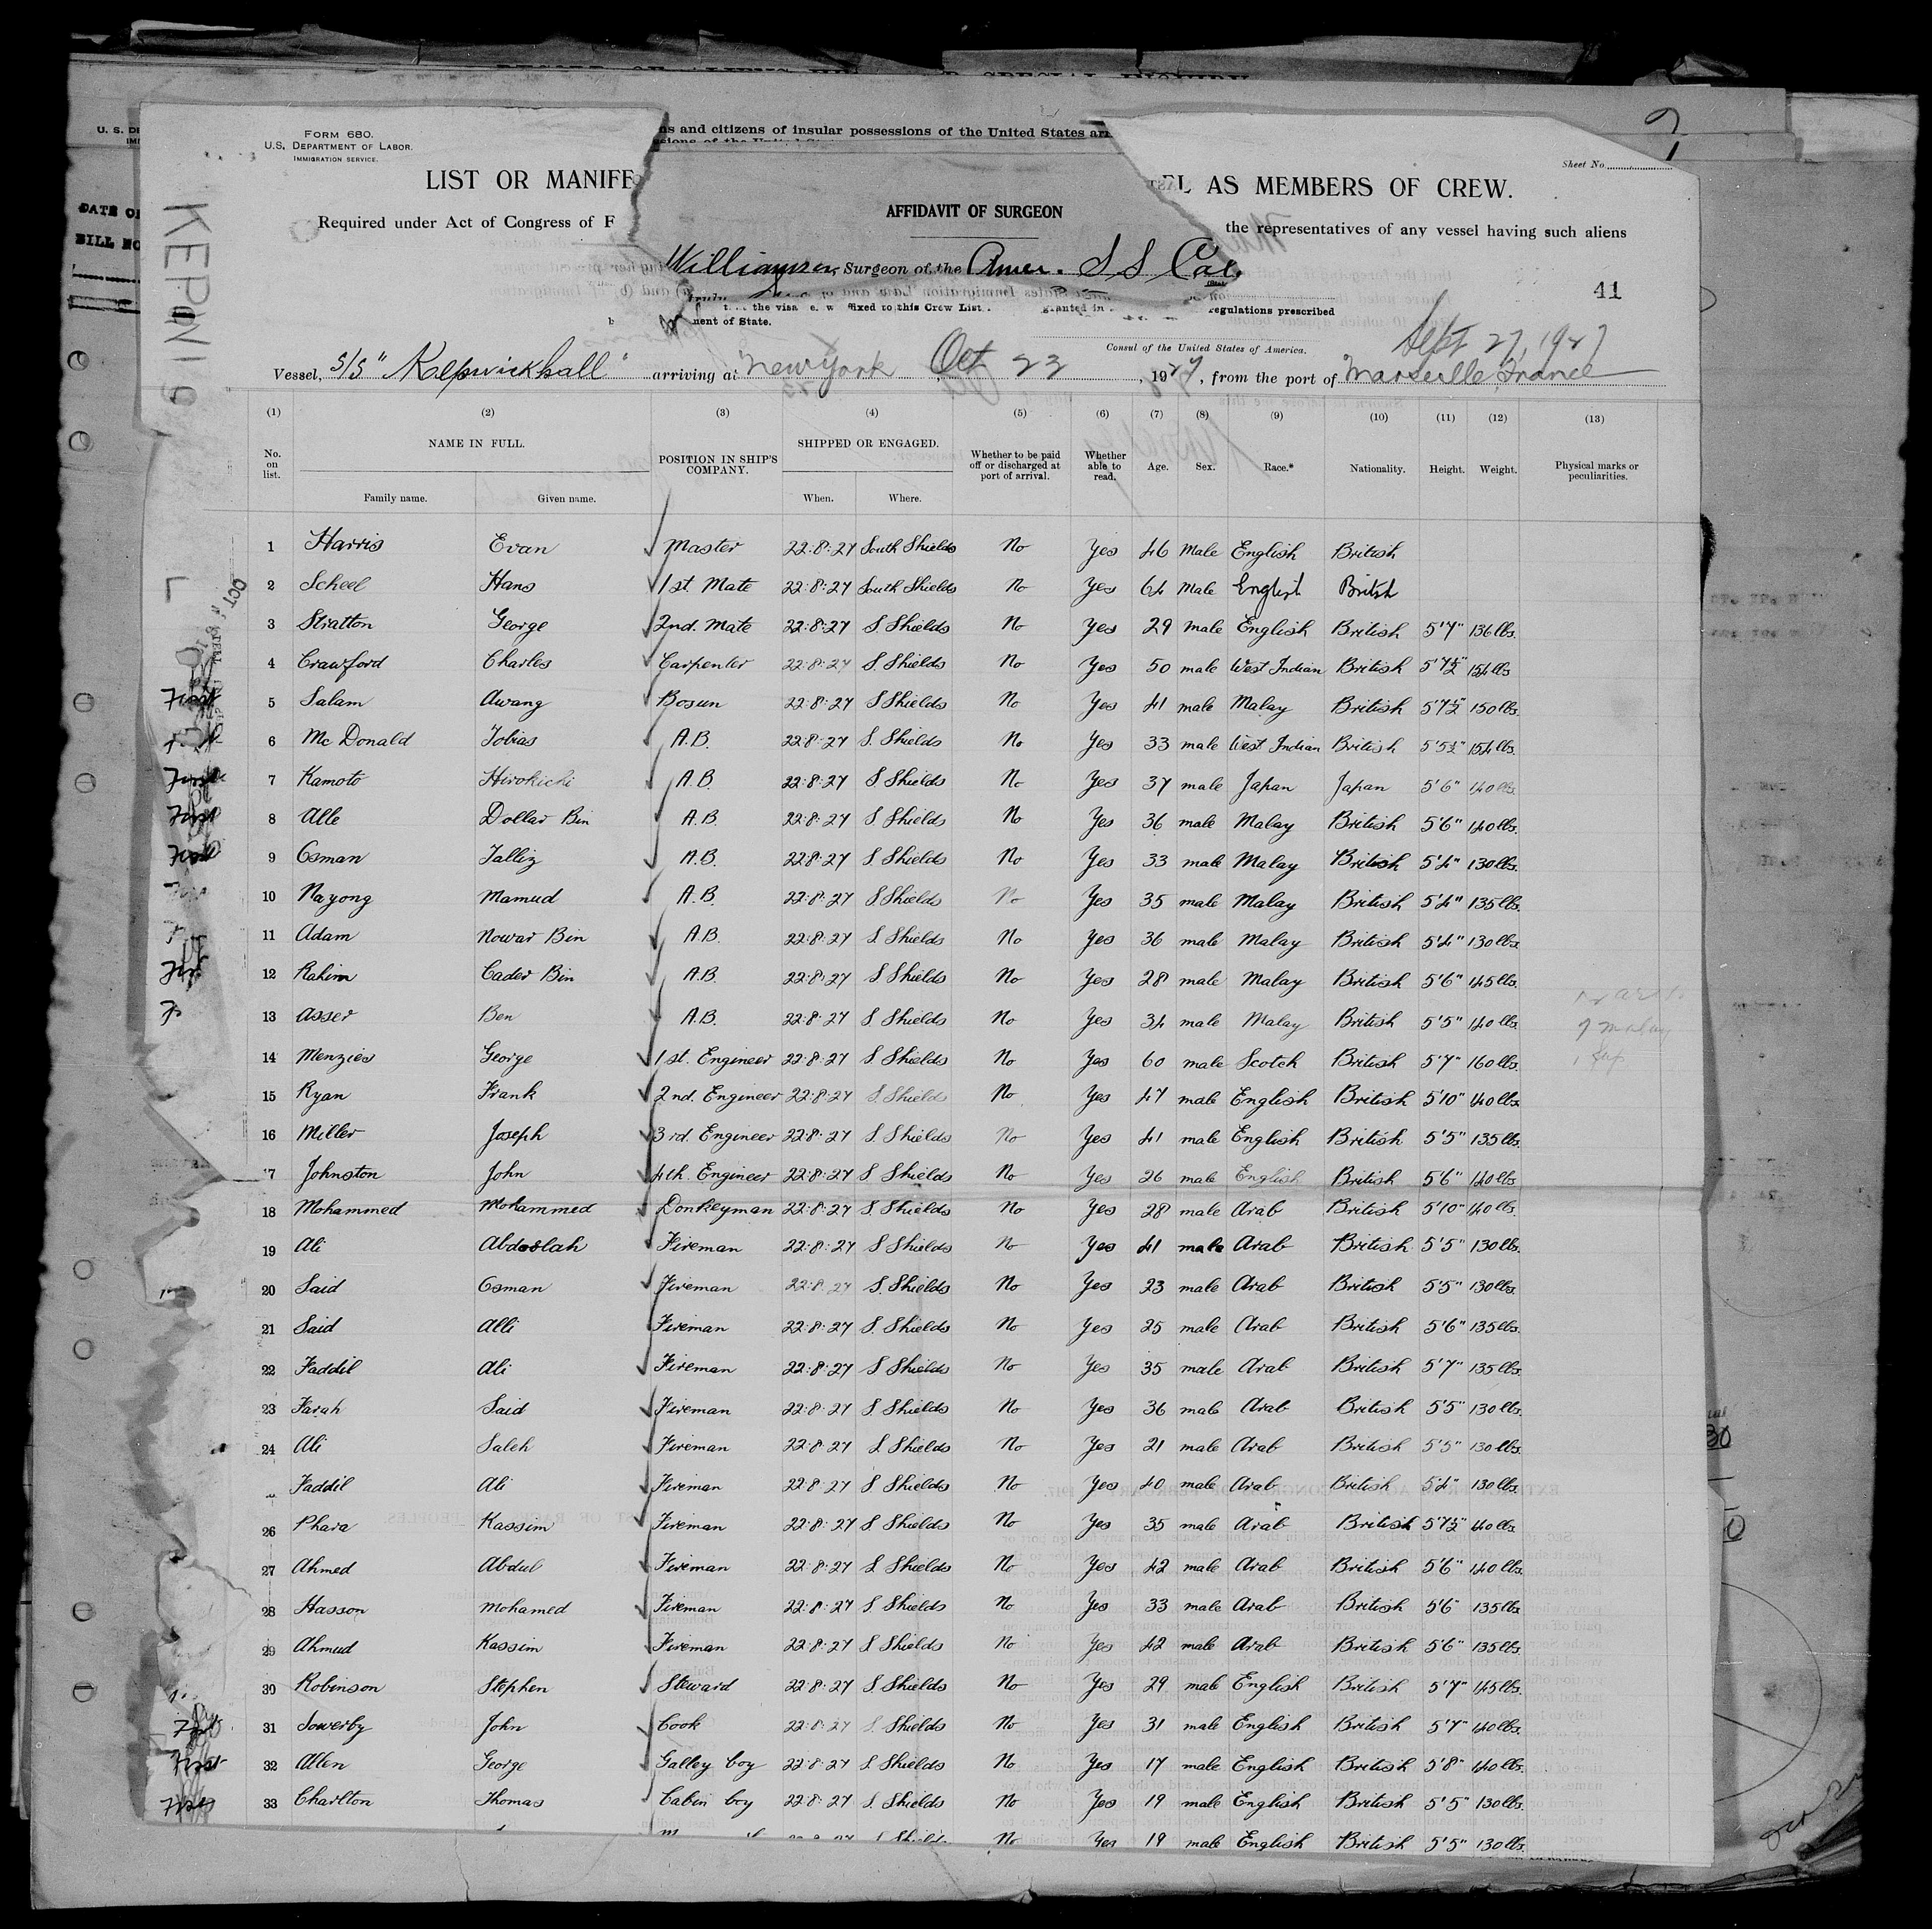 FORM 680.
U.S. DEPARTMENT OF LABOR.
IMMIGRATION SERVICE.
ns and citizens of insular possessions of the United States arr
Sheet No.
LIST OR MANIFE
EL AS MEMBERS OF CREW.
Required under Act of Congress of F
the representatives of any vessel having such aliens
AFFIDAVIT OF SURGEON
Williamson, Surgeon of the Amer. S S Cal
41
the visa
fixed to this Crew List
granted in
regulations prescribed
ment of State.
Consul of the United States of America.
Sept 27, 1927
Vessel, S/S "Kepwickhall" arriving at New York Oct 23, 1927, from the port of Marseille, France
(1) (2) (3) (4) (5) (6) (7) (8) (9) (10) (11) (12) (13)
No. on list. NAME IN FULL. POSITION IN SHIP'S COMPANY. SHIPPED OR ENGAGED. Whether to be paid off or discharged at port of arrival. Whether able to read. Age. Sex. Race.* Nationality. Height. Weight. Physical marks or peculiarities.
Family name. Given name. When. Where.
1 Harris Evan Master 22:8:27 South Shields No Yes 46 Male English British
2 Scheel Hans 1st. Mate 22:8:27 South Shields No Yes 64 Male English British
3 Stratton George 2nd. Mate 22:8:27 S. Shields No Yes 29 Male English British 5'7" 136 lbs.
4 Crawford Charles Carpenter 22:8:27 S. Shields No Yes 50 male West Indian British 5'7½" 154 lbs
5 Salam Awang Bosun 22:8:27 S Shields No Yes 41 male Malay British 5'7½" 150 lbs.
6 Mc Donald Tobias A.B. 22:8:27 S. Shields No Yes 33 male West Indian British 5'5½" 154 lbs.
7 Kamoto Hirokichi A.B. 22:8:27 S Shields No Yes 37 male Japan Japan 5'6" 140 lbs.
8 Alle Dollar Bin A.B. 22:8:27 S. Shields No Yes 36 male Malay British 5'6" 140 lbs.
9 Osman Talliz A.B. 22:8:27 S. Shields No Yes 33 male Malay British 5'4" 130 lbs.
10 Nayong Mamud A.B. 22:8:27 S Shields No Yes 35 male Malay British 5'4" 135 lbs.
11 Adam Nowar Bin A.B. 22:8:27 S Shields No Yes 36 male Malay British 5'4" 130 lbs.
12 Rahim Cader Bin A.B. 22:8:27 S Shields No Yes 28 male Malay British 5'6" 145 lbs.
13 Asser Ben A.B. 22:8:27 S Shields No Yes 34 male Malay British 5'5" 140 lbs.
14 Menzies George 1st. Engineer 22:8:27 S Shields No Yes 60 male Scotch British 5'7" 160 lbs.
15 Ryan Frank 2nd. Engineer 22:8:27 S. Shields No Yes 47 male English British 5'10" 140 lbs.
16 Miller Joseph 3rd. Engineer 22:8:27 S. Shields No Yes 41 male English British 5'5" 135 lbs.
17 Johnston John 4th. Engineer 22:8:27 S Shields No Yes 26 male English British 5'6" 140 lbs.
18 Mohammed Mohammed Donkeyman 22:8:27 S. Shields No Yes 28 male Arab British 5'10" 140 lbs.
19 Ali Abdoslah Fireman 22:8:27 S Shields No Yes 41 male Arab British 5'5" 130 lbs.
20 Said Osman Fireman 22:8:27 S. Shields No Yes 23 male Arab British 5'5" 130 lbs.
21 Said Alli Fireman 22:8:27 S. Shields No Yes 25 male Arab British 5'6" 135 lbs.
22 Faddil Ali Fireman 22:8:27 S Shields No Yes 35 male Arab British 5'7" 135 lbs.
23 Farah Said Fireman 22:8:27 S Shields No Yes 36 male Arab British 5'5" 130 lbs.
24 Ali Saleh Fireman 22:8:27 S Shields No Yes 21 male Arab British 5'5" 130 lbs.
Faddil Ali Fireman 22:8:27 S Shields No Yes 40 male Arab British 5'4" 130 lbs.
26 Phara Kassim Fireman 22:8:27 S Shields No Yes 35 male Arab British 5'7½" 140 lbs
27 Ahmed Abdul Fireman 22:8:27 S Shields No Yes 42 male Arab British 5'6" 140 lbs.
28 Hasson Mohamed Fireman 22:8:27 S Shields No Yes 33 male Arab British 5'6" 135 lbs
29 Ahmud Kassim Fireman 22:8:27 S Shields No Yes 42 male Arab British 5'6" 135 lbs.
30 Robinson Stephen Steward 22:8:27 S. Shields No Yes 29 male English British 5'7" 145 lbs.
31 Sowerby John Cook 22:8:27 S. Shields No Yes 31 male English British 5'7" 140 lbs.
32 Allen George Galley boy 22:8:27 S Shields No Yes 17 male English British 5'8" 140 lbs.
33 Charlton Thomas Cabin boy 22:8:27 S. Shields No Yes 19 male English British 5'5" 130 lbs.
No Yes 19 male English British 5'5" 130 lbs.